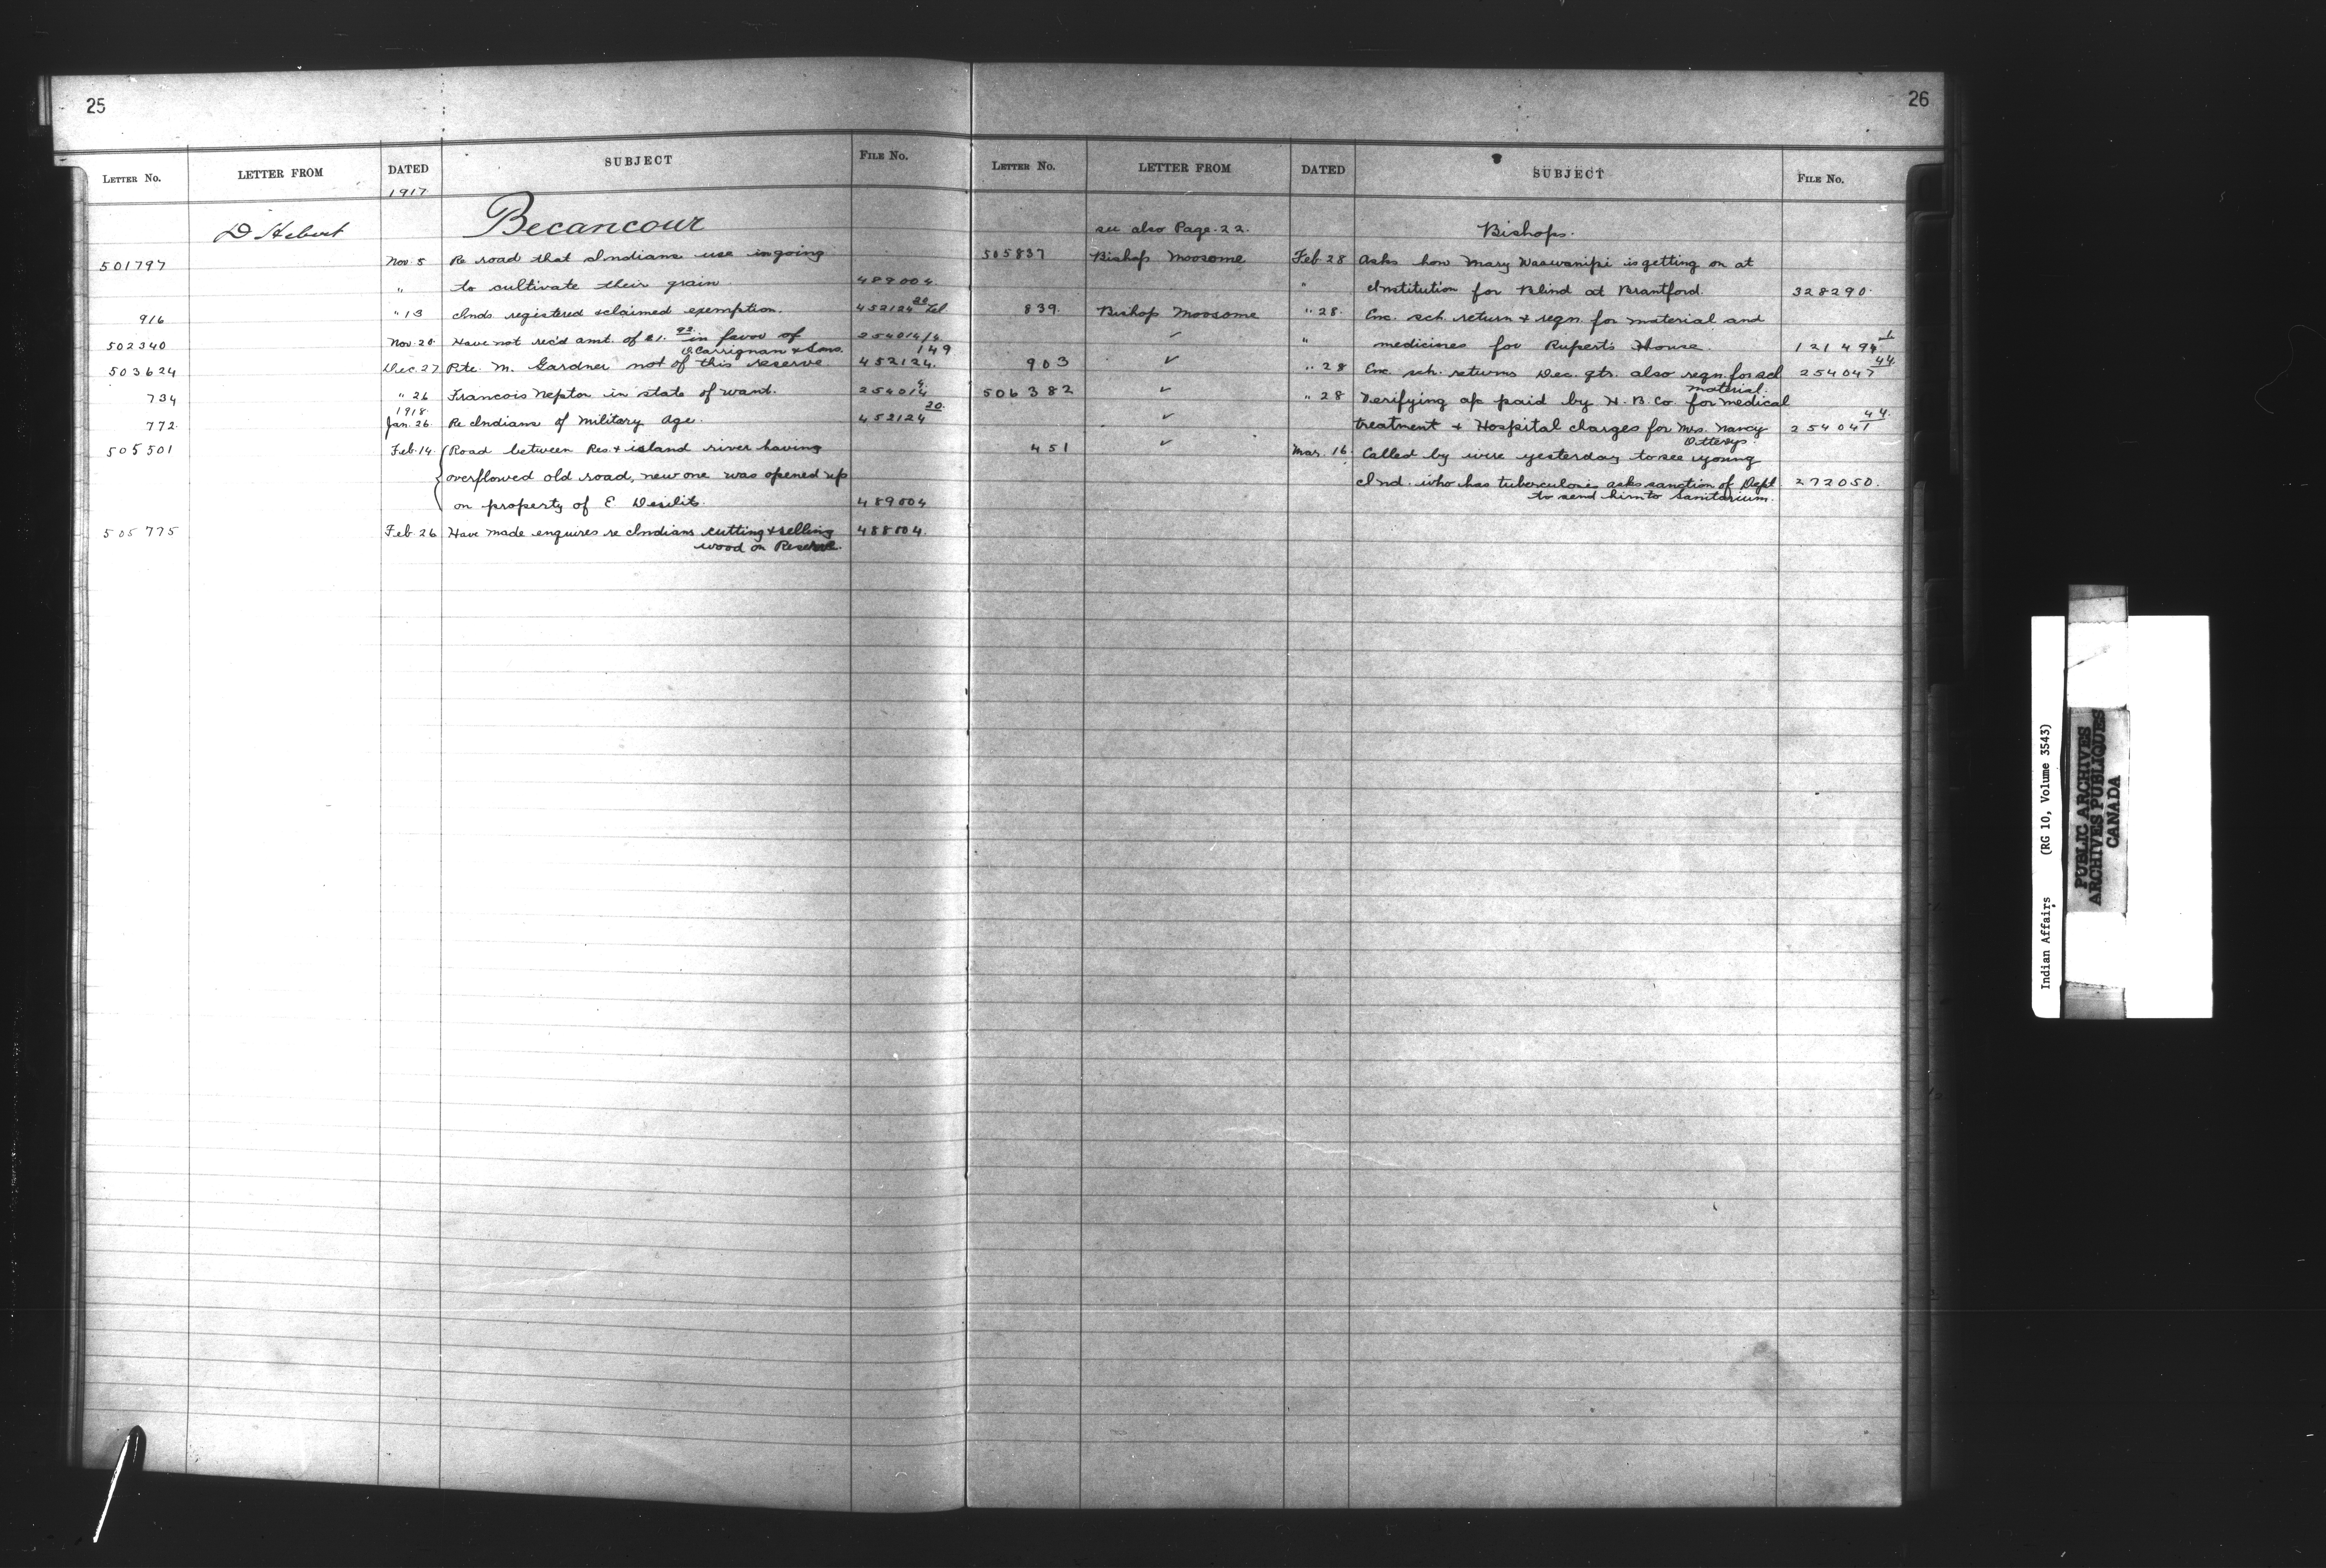 25
LETTER NO. LETTER FROM DATED SUBJECT FILE NO.
1917
D Hebert Becancour
501797 Nov. 5 Re road that Indians use in going
" to cultivate their grain. 489004.
916 " 13 Inds registered & claimed exemption. 452124 20 Vel
502340 Nov. 20 Have not rec'd amt. of 21. 92 in favor of 254014/4.
O. Carrignan & Sons. 149
503624 Dec. 27 Pte. M. Gardner not of this reserve. 452124.
734 " 26 Francois Nepton in state of want. 254014 4.
1918.
772. Jan. 26. Re Indians of Military Age. 452124 20.
505501 Feb. 14. Road between Res. & island river having
overflowed old road, new one was opened up
on property of E Desilets. 489004
505775 Feb. 26 Have made enquires re Indians cutting & selling 488504.
wood on Reserve.
26
LETTER NO. LETTER FROM DATED SUBJECT FILE NO.
see also Page. 22. Bishops.
505837 Bishop Moosome Feb. 28 Asks how Mary Waswanipi is getting on at
" Institution for Blind at Brantford. 328290.
839. Bishop Moosome " 28. Enc. sch. return & reqn. for material and
✓ " medicines for Rupert's House. 121494
903 ✓ " 28 Enc. sch. returns Dec. qtr. also reqn. for scl 254047 44.
material.
506382 ✓ " 28 Verifying a/c paid by H. B. Co for medical
✓ treatment & Hospital charges for Mrs. Nancy 254041 44.
Otterys.
451 ✓ Mar. 16 Called by wire yesterday to see young
Ind. who has tuberculosis asks sanction of Dept 272050.
to send him to Sanitarium.
Indian Affairs (RG 10, Volume 3543)
PUBLIC ARCHIVES
ARCHIVES PUBLIQUES
CANADA